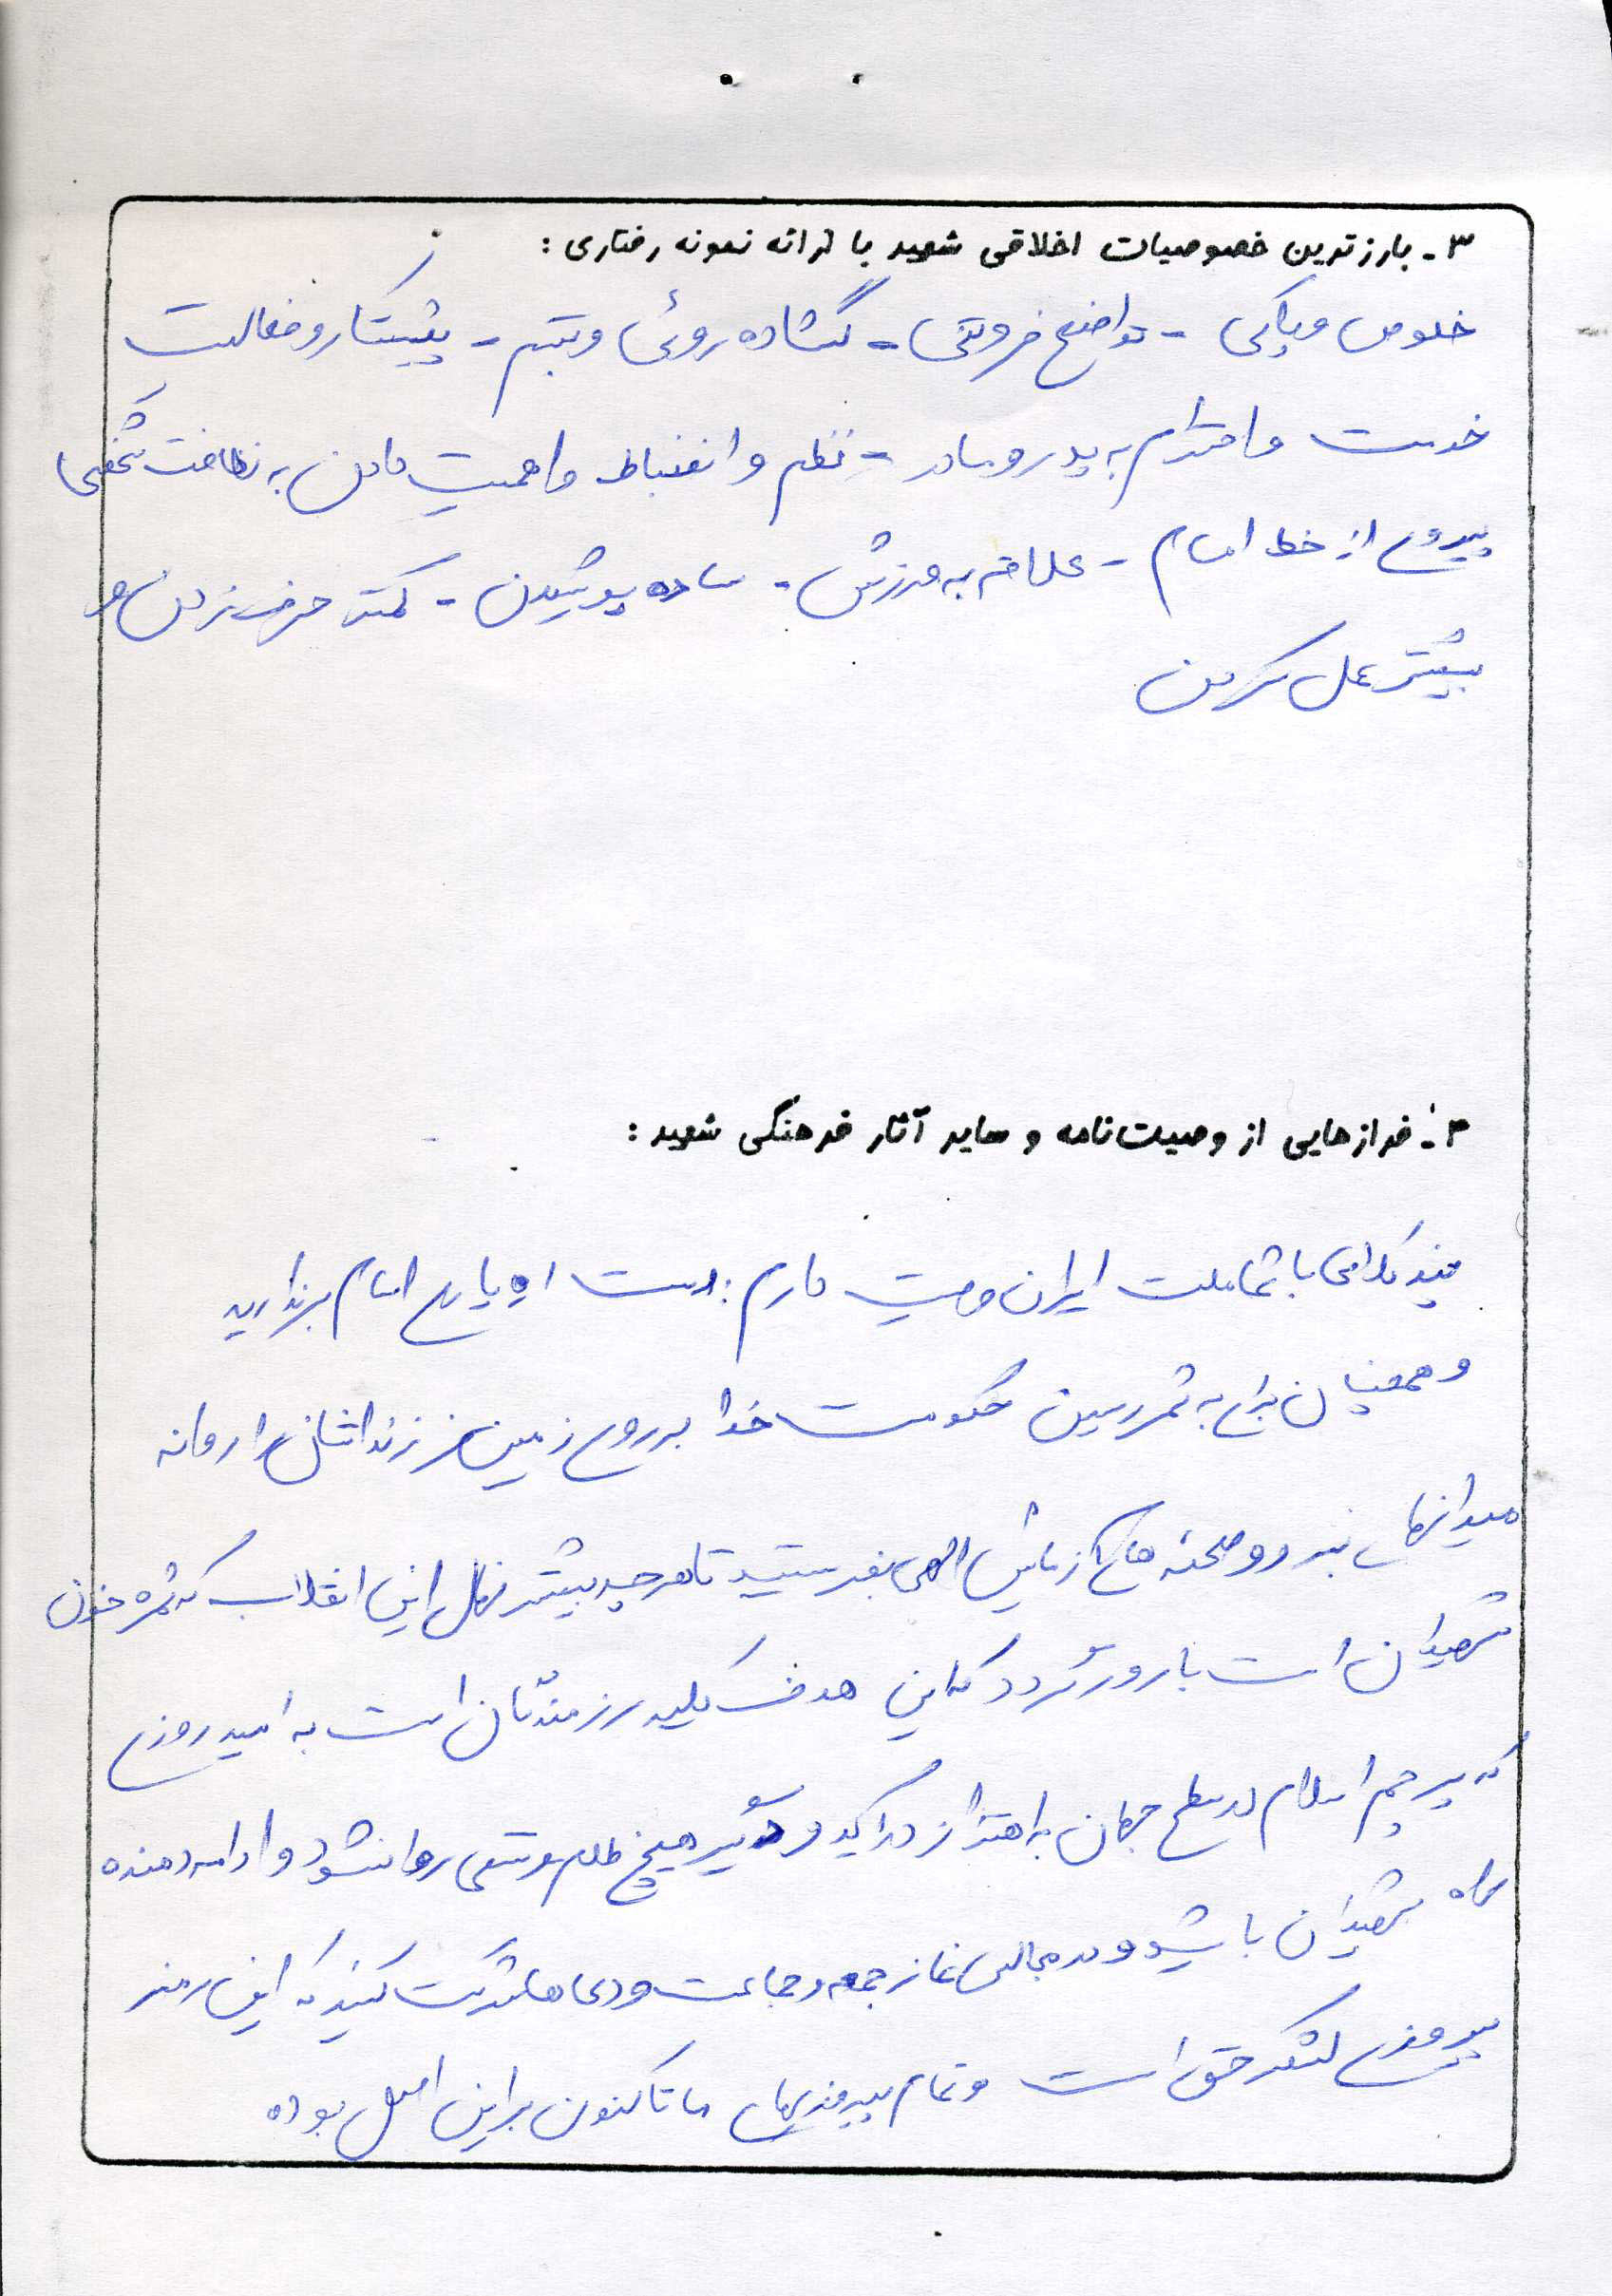 ۳ - بارزترین خصوصیات اخلاقی شهید با ارائه نمونه رفتاری :
خلوص و پاکی - تواضع فروتنی - گشاده روئی و تبسم - پشتکار و فعالیت
خدمت و احترام به پدر و مادر - نظم و انضباط و اهمیت دادن به نظافت شخصی
پیروی از خط امام - علاقه به ورزش - ساده پوشیدن - کمتر حرف زدن و
بیشتر عمل کردن
۴ - فرازهایی از وصیت‌نامه و سایر آثار فرهنگی شهید :
چند کلامی با شما ملت ایران وصیت دارم : دست از یاری امام برندارید
و همچنان برای به ثمر رسیدن حکومت خدا بر روی زمین فرزندانتان را روانه
میدانهای نبرد و صحنه های آزمایش الهی بفرستید تا هر چه بیشتر نهال این انقلاب که ثمره خون
شهیدان است بارور گردد که این هدف کلیه رزمندگان است به امید روزی
که پرچم اسلام در سطح جهان به اهتزاز درآید و دیگر هیچ ظلم و ستمی روا نشود و ادامه دهنده
راه شهیدان باشید و در مجالس نماز جمعه و جماعت و دعاها شرکت کنید که این رمز
پیروزی لشکر حق است و تمام پیروزیهای ما تاکنون بر این اصل بوده